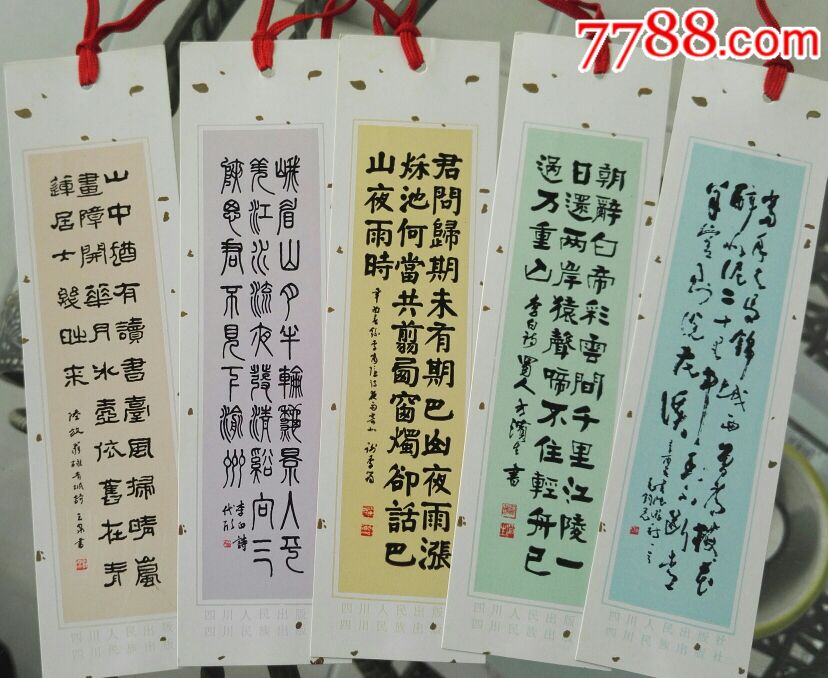 7788.com
山中猶有讀書臺風掃晴嵐
畫障開華月冰壺依舊在青
蓮居士幾時來
四川人民出版社
四川民族出版社
峨眉山月半輪秋影入平
羌江水流夜發清谿向三
峽思君不見下渝州
李白詩
四川人民出版社
四川民族出版社
君問歸期未有期巴山夜雨漲
秋池何當共剪西窗燭卻話巴
山夜雨時
四川人民出版社
四川民族出版社
朝辭白帝彩雲間千里江陵一
日還兩岸猿聲啼不住輕舟已
過万重山 李白詩 蜀人
四川人民出版社
四川民族出版社
當年走馬錦城西曾為梅花
醉似泥二十里中香不斷青
羊宮到浣花溪
四川人民出版社
四川民族出版社